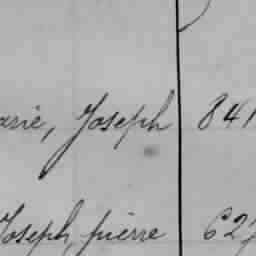 arie, Joseph 841
Joseph, pierre 627